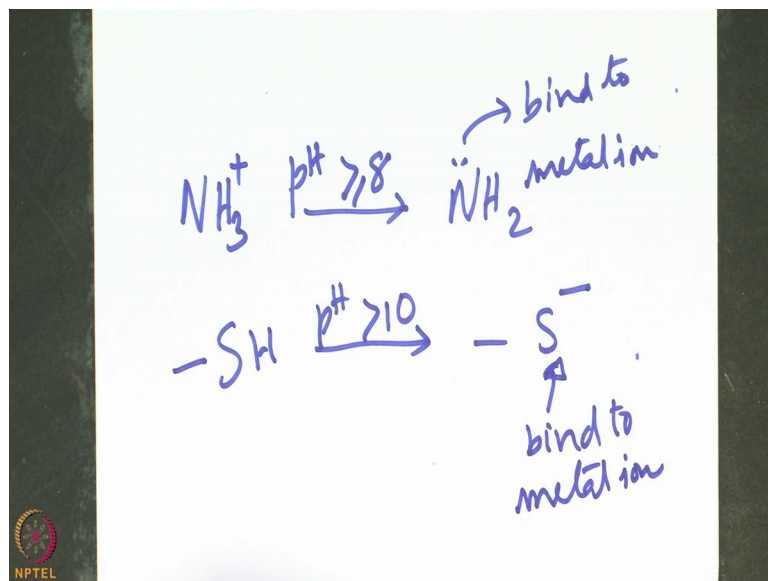 NH₃⁺ pH ⩾8 → N̈H₂ → bind to metal ion
-SH pH >10 → - S⁻
bind to
metal ion
NPTEL